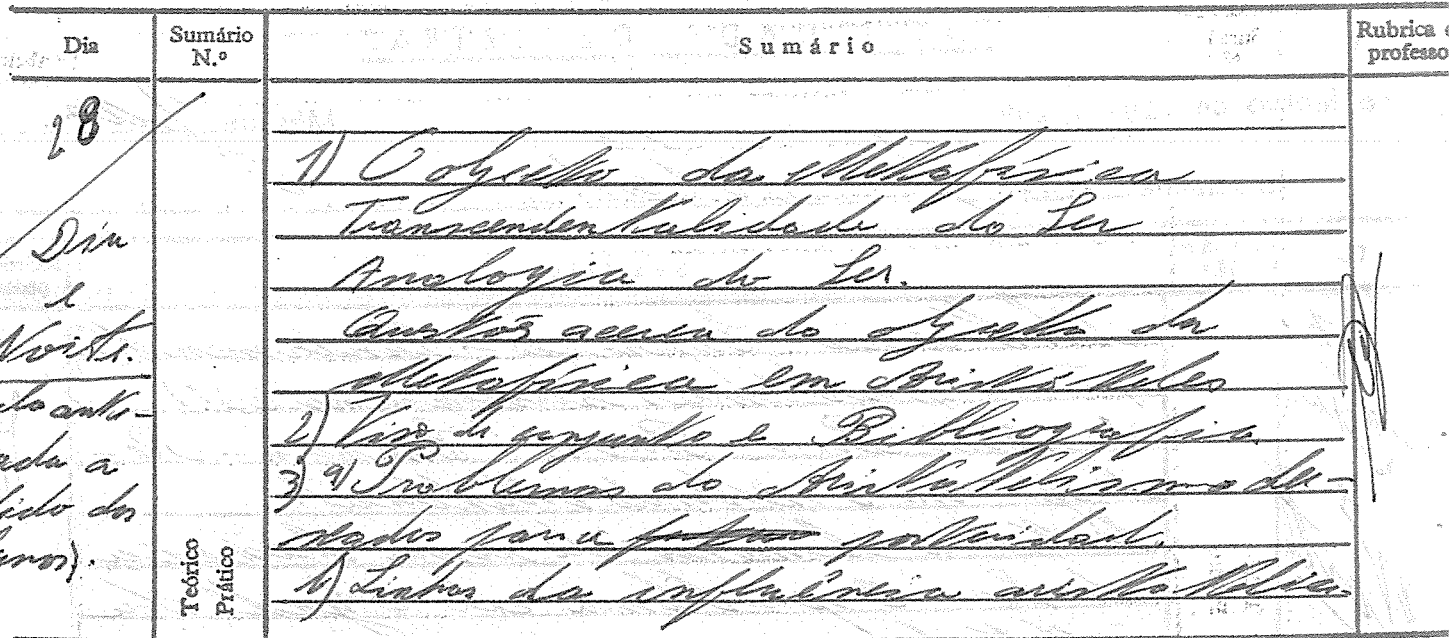 Dia
Sumário N.º
Sumário
Rubrica d
professo
28
Dia
e
Noite.
ada a
1) O objecto da Metafísica
Transcendentalidade do Ser
Analogia do Ser.
Questões acerca do objecto da
Metafísica em Aristóteles
2) Visão de conjunto e Bibliografia
3) a) Problemas do Aristotelismo de-
legados para posteridade.
b) Linhas da influência aristotélica
Teórico
Prático